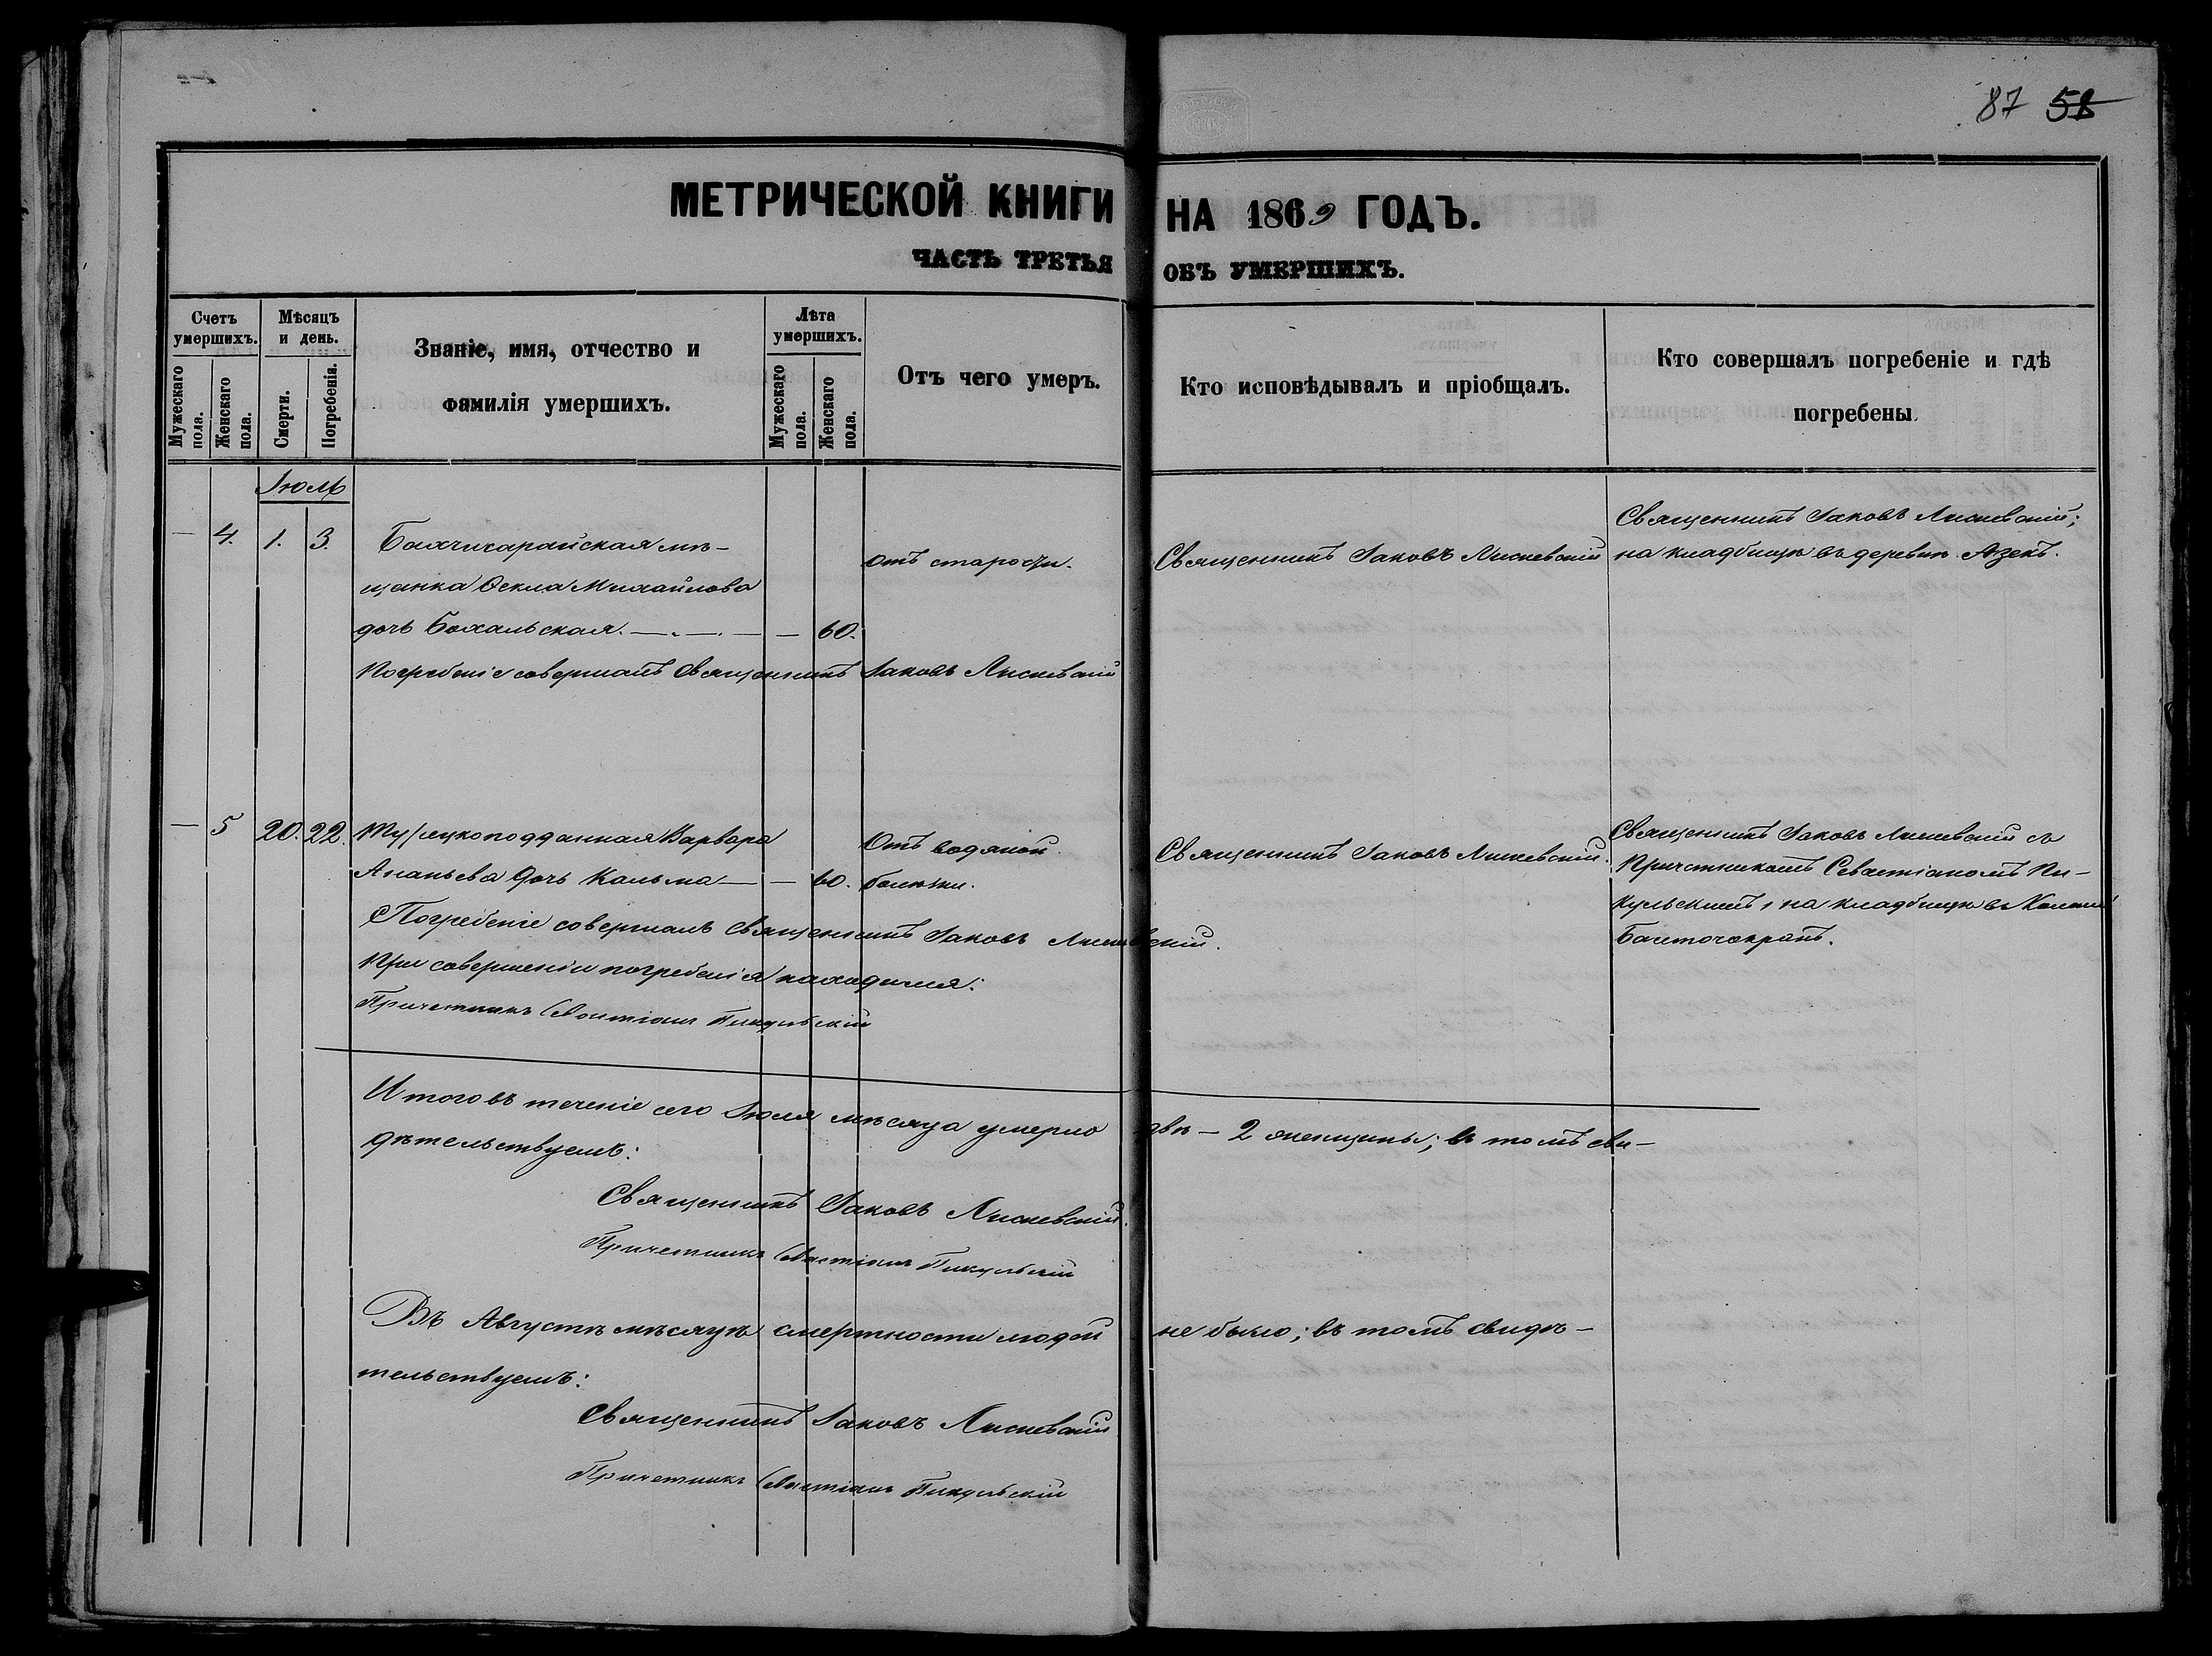 87 58
МЕТРИЧЕСКОЙ КНИГИ НА 1869 ГОДЪ.
ЧАСТЬ ТРЕТЬЯ ОБЪ УМЕРШИХЪ.
Счетъ умершихъ.
Мужескаго пола.
Женскаго пола.
Мѣсяцъ и день.
Смерти.
Погребенія.
Званіе, имя, отчество и
фамилія умершихъ.
Лѣта умершихъ.
Мужескаго пола.
Женскаго пола.
Отъ чего умеръ.
Кто исповѣдывалъ и пріобщалъ.
Кто совершалъ погребеніе и гдѣ
погребены.
Іюль
— 4. 1. 3.
Бахчисарайская мѣ-
щанка Ѳекла Михайлова
дочь Бохальская. — — 60.
отъ старости.
Священникъ Іаковъ Лисневскій
Священникъ Іаковъ Лисневскій;
на кладбищѣ въ деревнѣ Азекъ.
Погребеніе совершалъ Священникъ Іаковъ Лисневскій
— 5 20. 22. Турецкоподданная Варвара
Ананьева дочь Кальма — — 60.
Отъ водяной
болезни.
Священникъ Іаковъ Лисневскій.
Священникъ Іаковъ Лисневскій съ
Причетникомъ Севастіаномъ Пи-
кульскимъ, на кладбищѣ въ
Погребеніе совершалъ Священникъ Іаковъ Лисневскій.
При совершеніи погребенія находился:
Причетникъ Севастіанъ Пикульскій
Итого въ теченіе сего Іюля мѣсяца умерло двѣ — 2 женщины; въ томъ сви-
дѣтельствуемъ:
Священникъ Іаковъ Лисневскій.
Причетникъ Севастіанъ Пикульскій
Въ Августѣ мѣсяцѣ смертности людей не было; въ томъ свидѣ-
тельствуемъ:
Священникъ Іаковъ Лисневскій
Причетникъ Севастіанъ Пикульскій